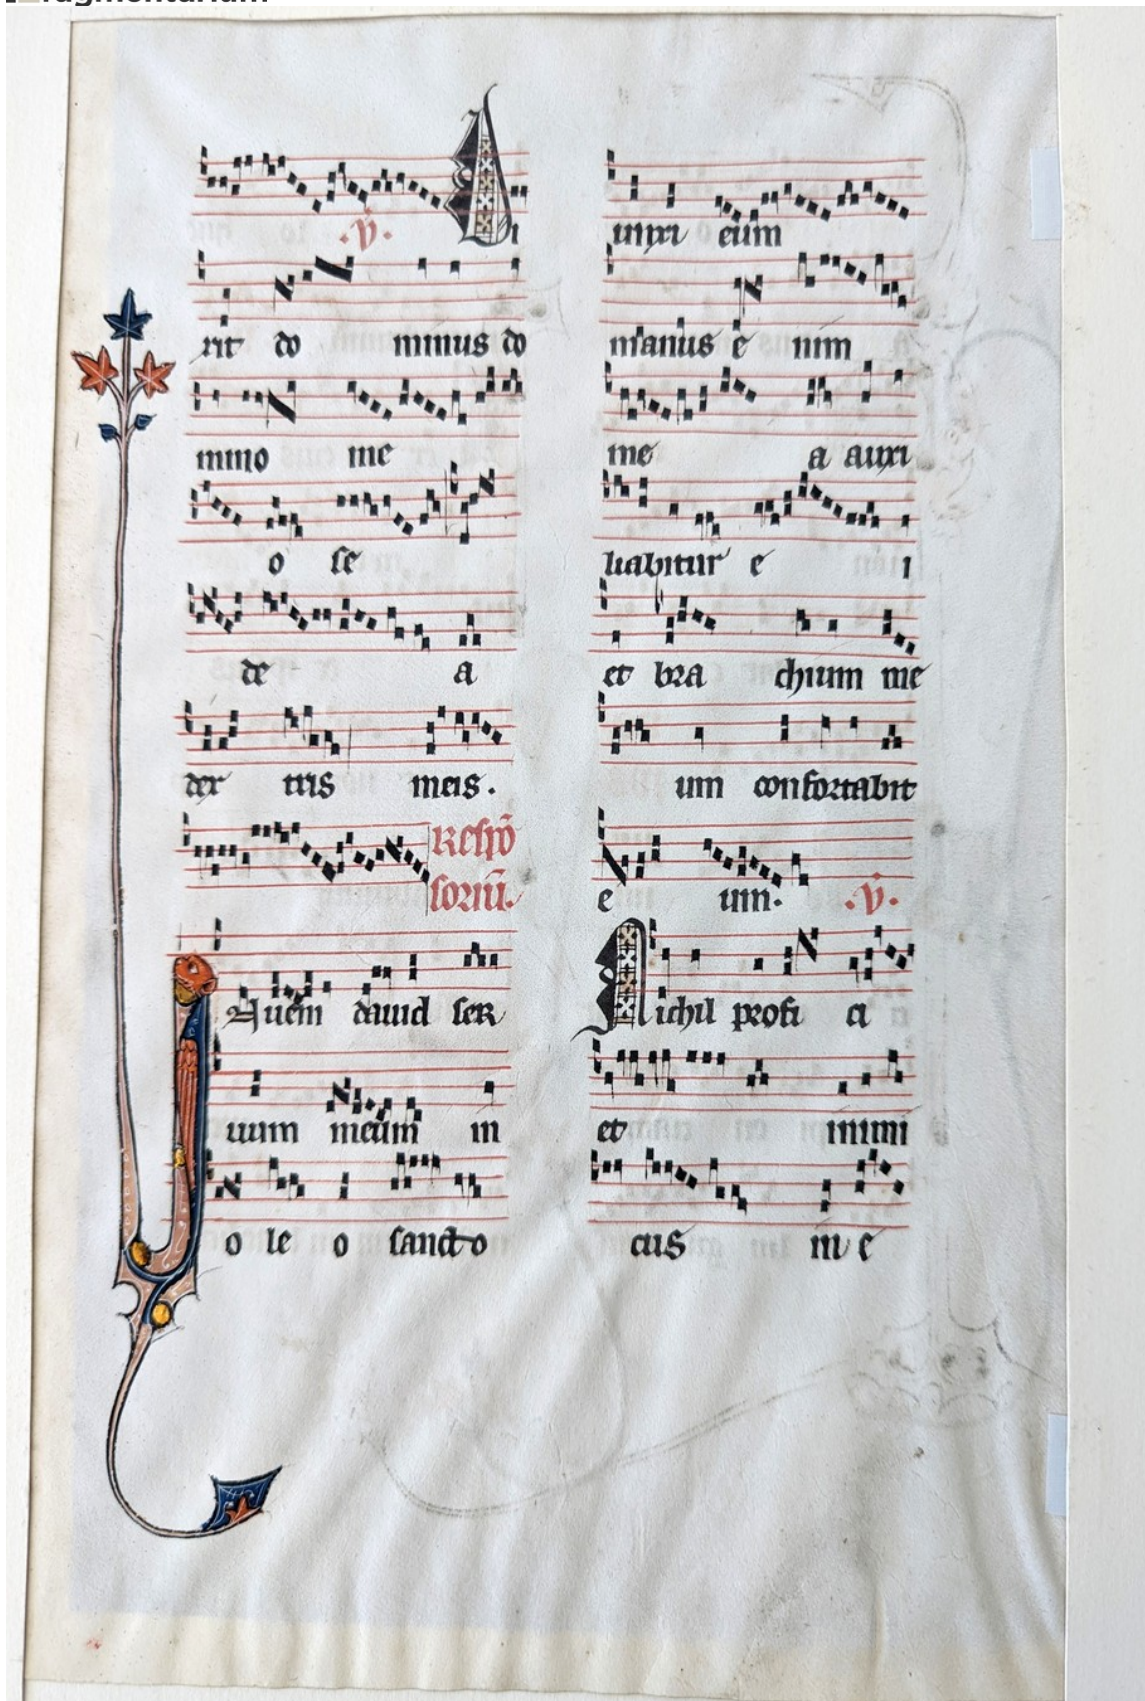 ragmentarium
.v̄. Di
xit do minus do
mino me
o se
de a
dex tris meis.
Respō
soriū.
INueni dauid ser
uum meum in
o le o sancto
unxi eum
manus e nim
me a auxi
liabitur e i
et bra chium me
um confortabit
e um. .v̄.
Nichil profi ci
et inimi
cus in e